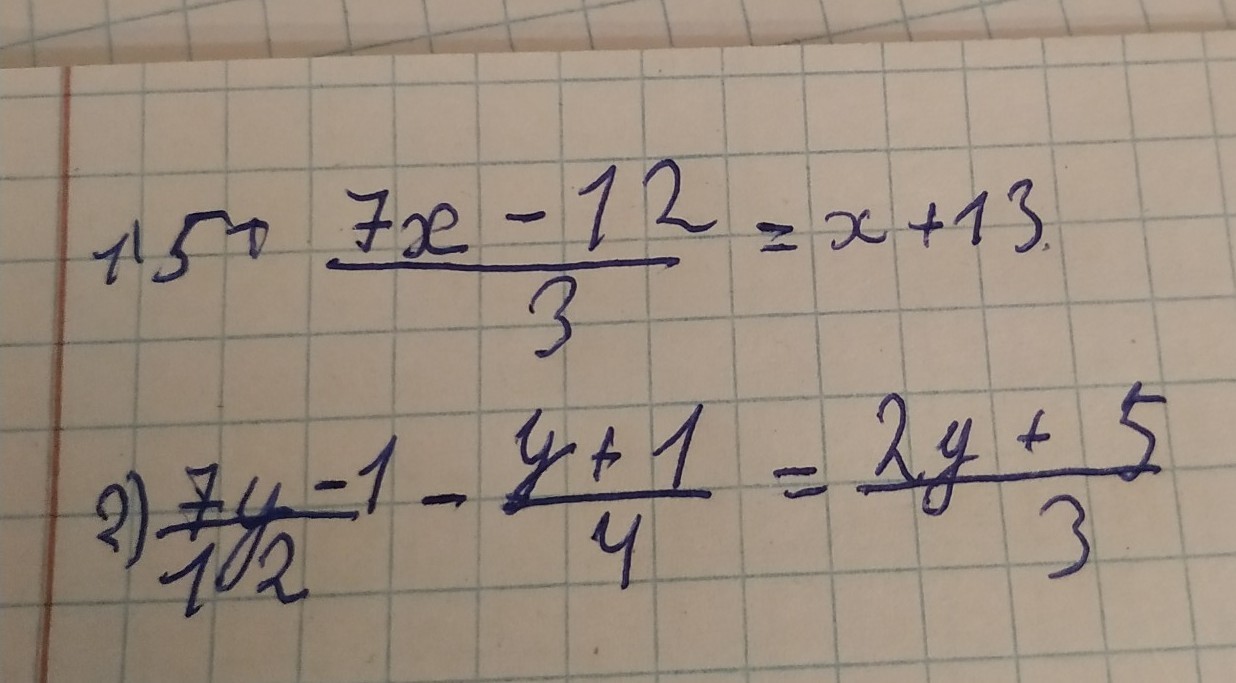 1) 5 + (7x - 12)/3 = x + 13.
2) (7y - 1)/12 - (y + 1)/4 = (2y + 5)/3